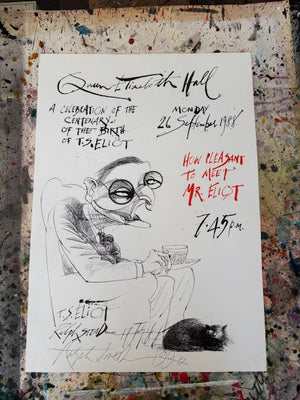 Queen Elizabeth Hall
A CELEBRATION OF THE
CENTENARY
OF THE BIRTH
OF T.S. ELIOT
MONDAY
26 September 1988
HOW PLEASANT
TO MEET
MR. ELIOT
7.45 p.m.
T.S. ELIOT
Ralph STEADman